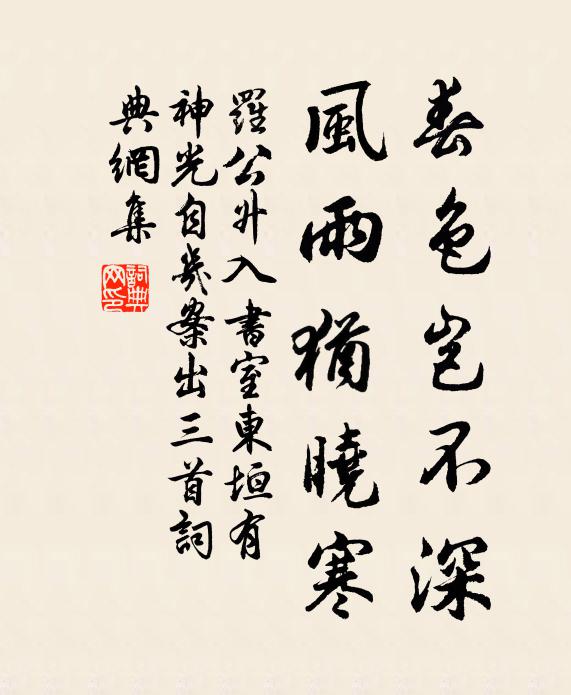 春色豈不深
風雨猶曉寒
羅公升入書室東垣有
神光自幾案出三首詞
典網集
詞典網印